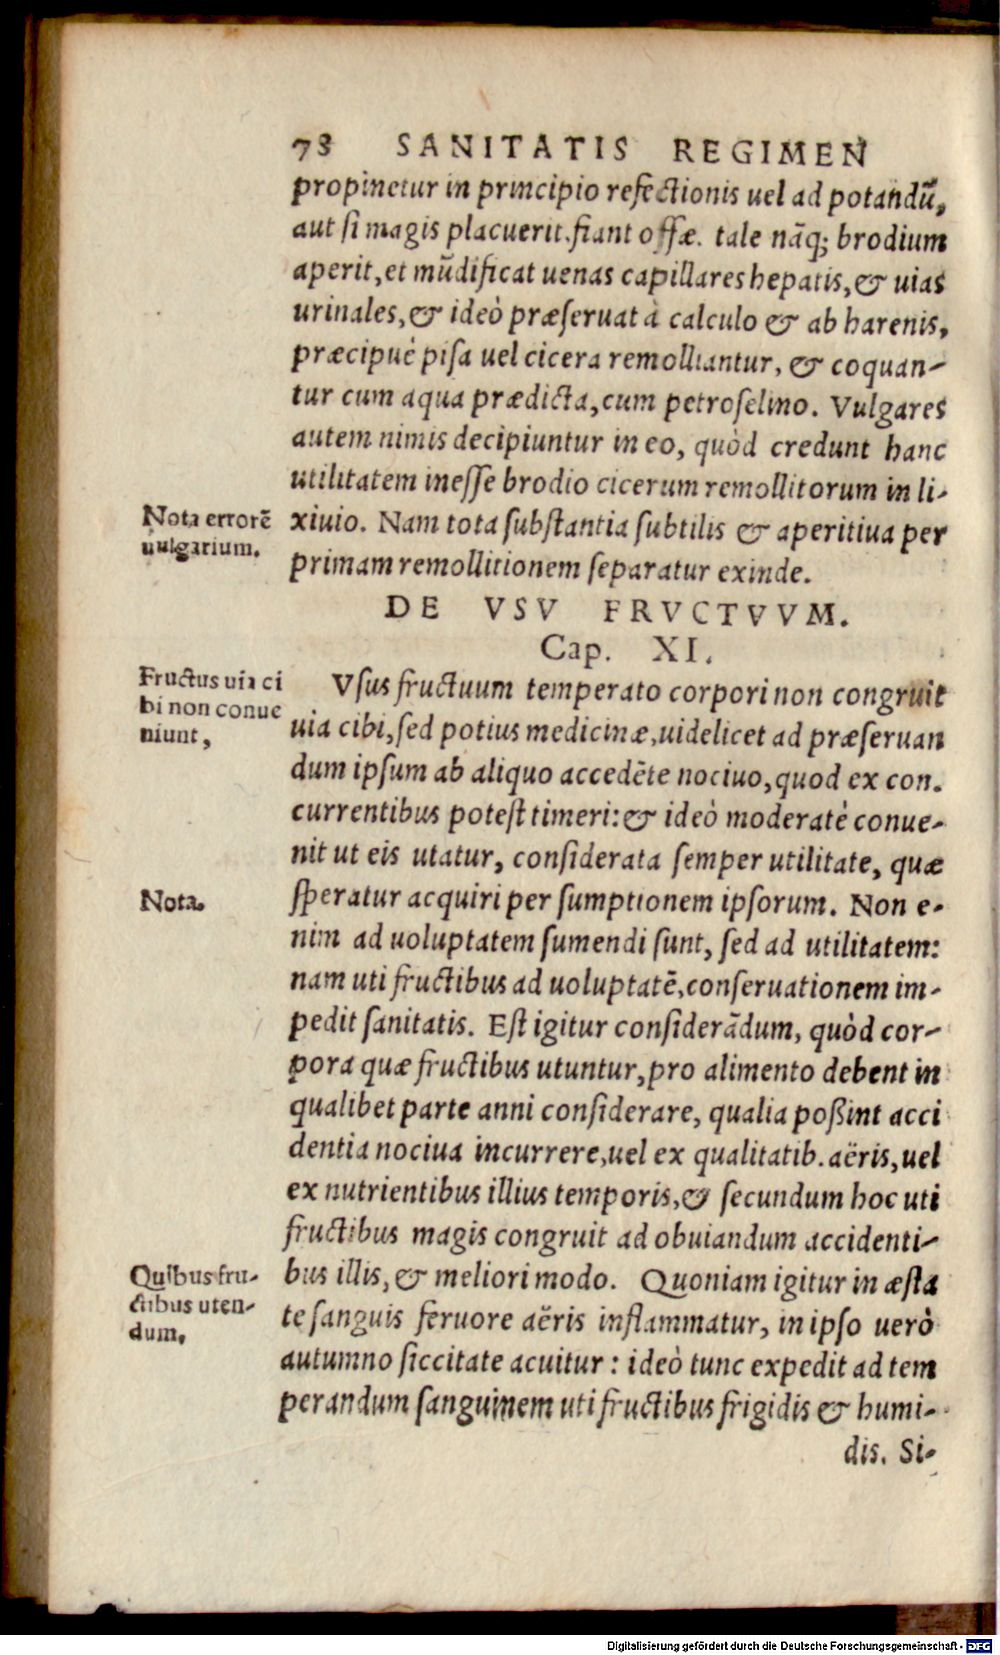 78 SANITATIS REGIMEN
propinetur in principio refectionis uel ad potandũ,
aut si magis placuerit. fiant offæ. tale nãq; brodium
aperit, et mũdificat uenas capillares hepatis, & uias
urinales, & ideò præseruat à calculo & ab harenis,
præcipuè pisa uel cicera remolliantur, & coquan-
tur cum aqua prædicta, cum petroselino. Vulgares
autem nimis decipiuntur in eo, quòd credunt hanc
utilitatem inesse brodio cicerum remollitorum in li-
Nota errorẽ
uulgarium.
xiuio. Nam tota substantia subtilis & aperitiua per
primam remollitionem separatur exinde.
DE VSV FRVCTVVM.
Cap. XI.
Fructus uia ci
bi non conue
niunt,
Vsus fructuum temperato corpori non congruit
uia cibi, sed potius medicinæ, uidelicet ad præseruan
dum ipsum ab aliquo accedẽte nociuo, quod ex con.
currentibus potest timeri: & ideò moderatè conue-
nit ut eis utatur, considerata semper utilitate, quæ
Nota.
speratur acquiri per sumptionem ipsorum. Non e-
nim ad uoluptatem sumendi sunt, sed ad utilitatem:
nam uti fructibus ad uoluptatẽ, conseruationem im-
pedit sanitatis. Est igitur considerãdum, quòd cor-
pora quæ fructibus utuntur, pro alimento debent in
qualibet parte anni considerare, qualia poßint acci
dentia nociua incurrere, uel ex qualitatib. aëris, uel
ex nutrientibus illius temporis, & secundum hoc uti
fructibus magis congruit ad obuiandum accidenti-
Quibus fru-
ctibus uten-
dum.
bus illis, & meliori modo. Quoniam igitur in æsta
te sanguis feruore aëris inflammatur, in ipso uerò
autumno siccitate acuitur: ideò tunc expedit ad tem
perandum sanguinem uti fructibus frigidis & humi-
dis. Si-
Digitalisierung gefördert durch die Deutsche Forschungsgemeinschaft - DFG